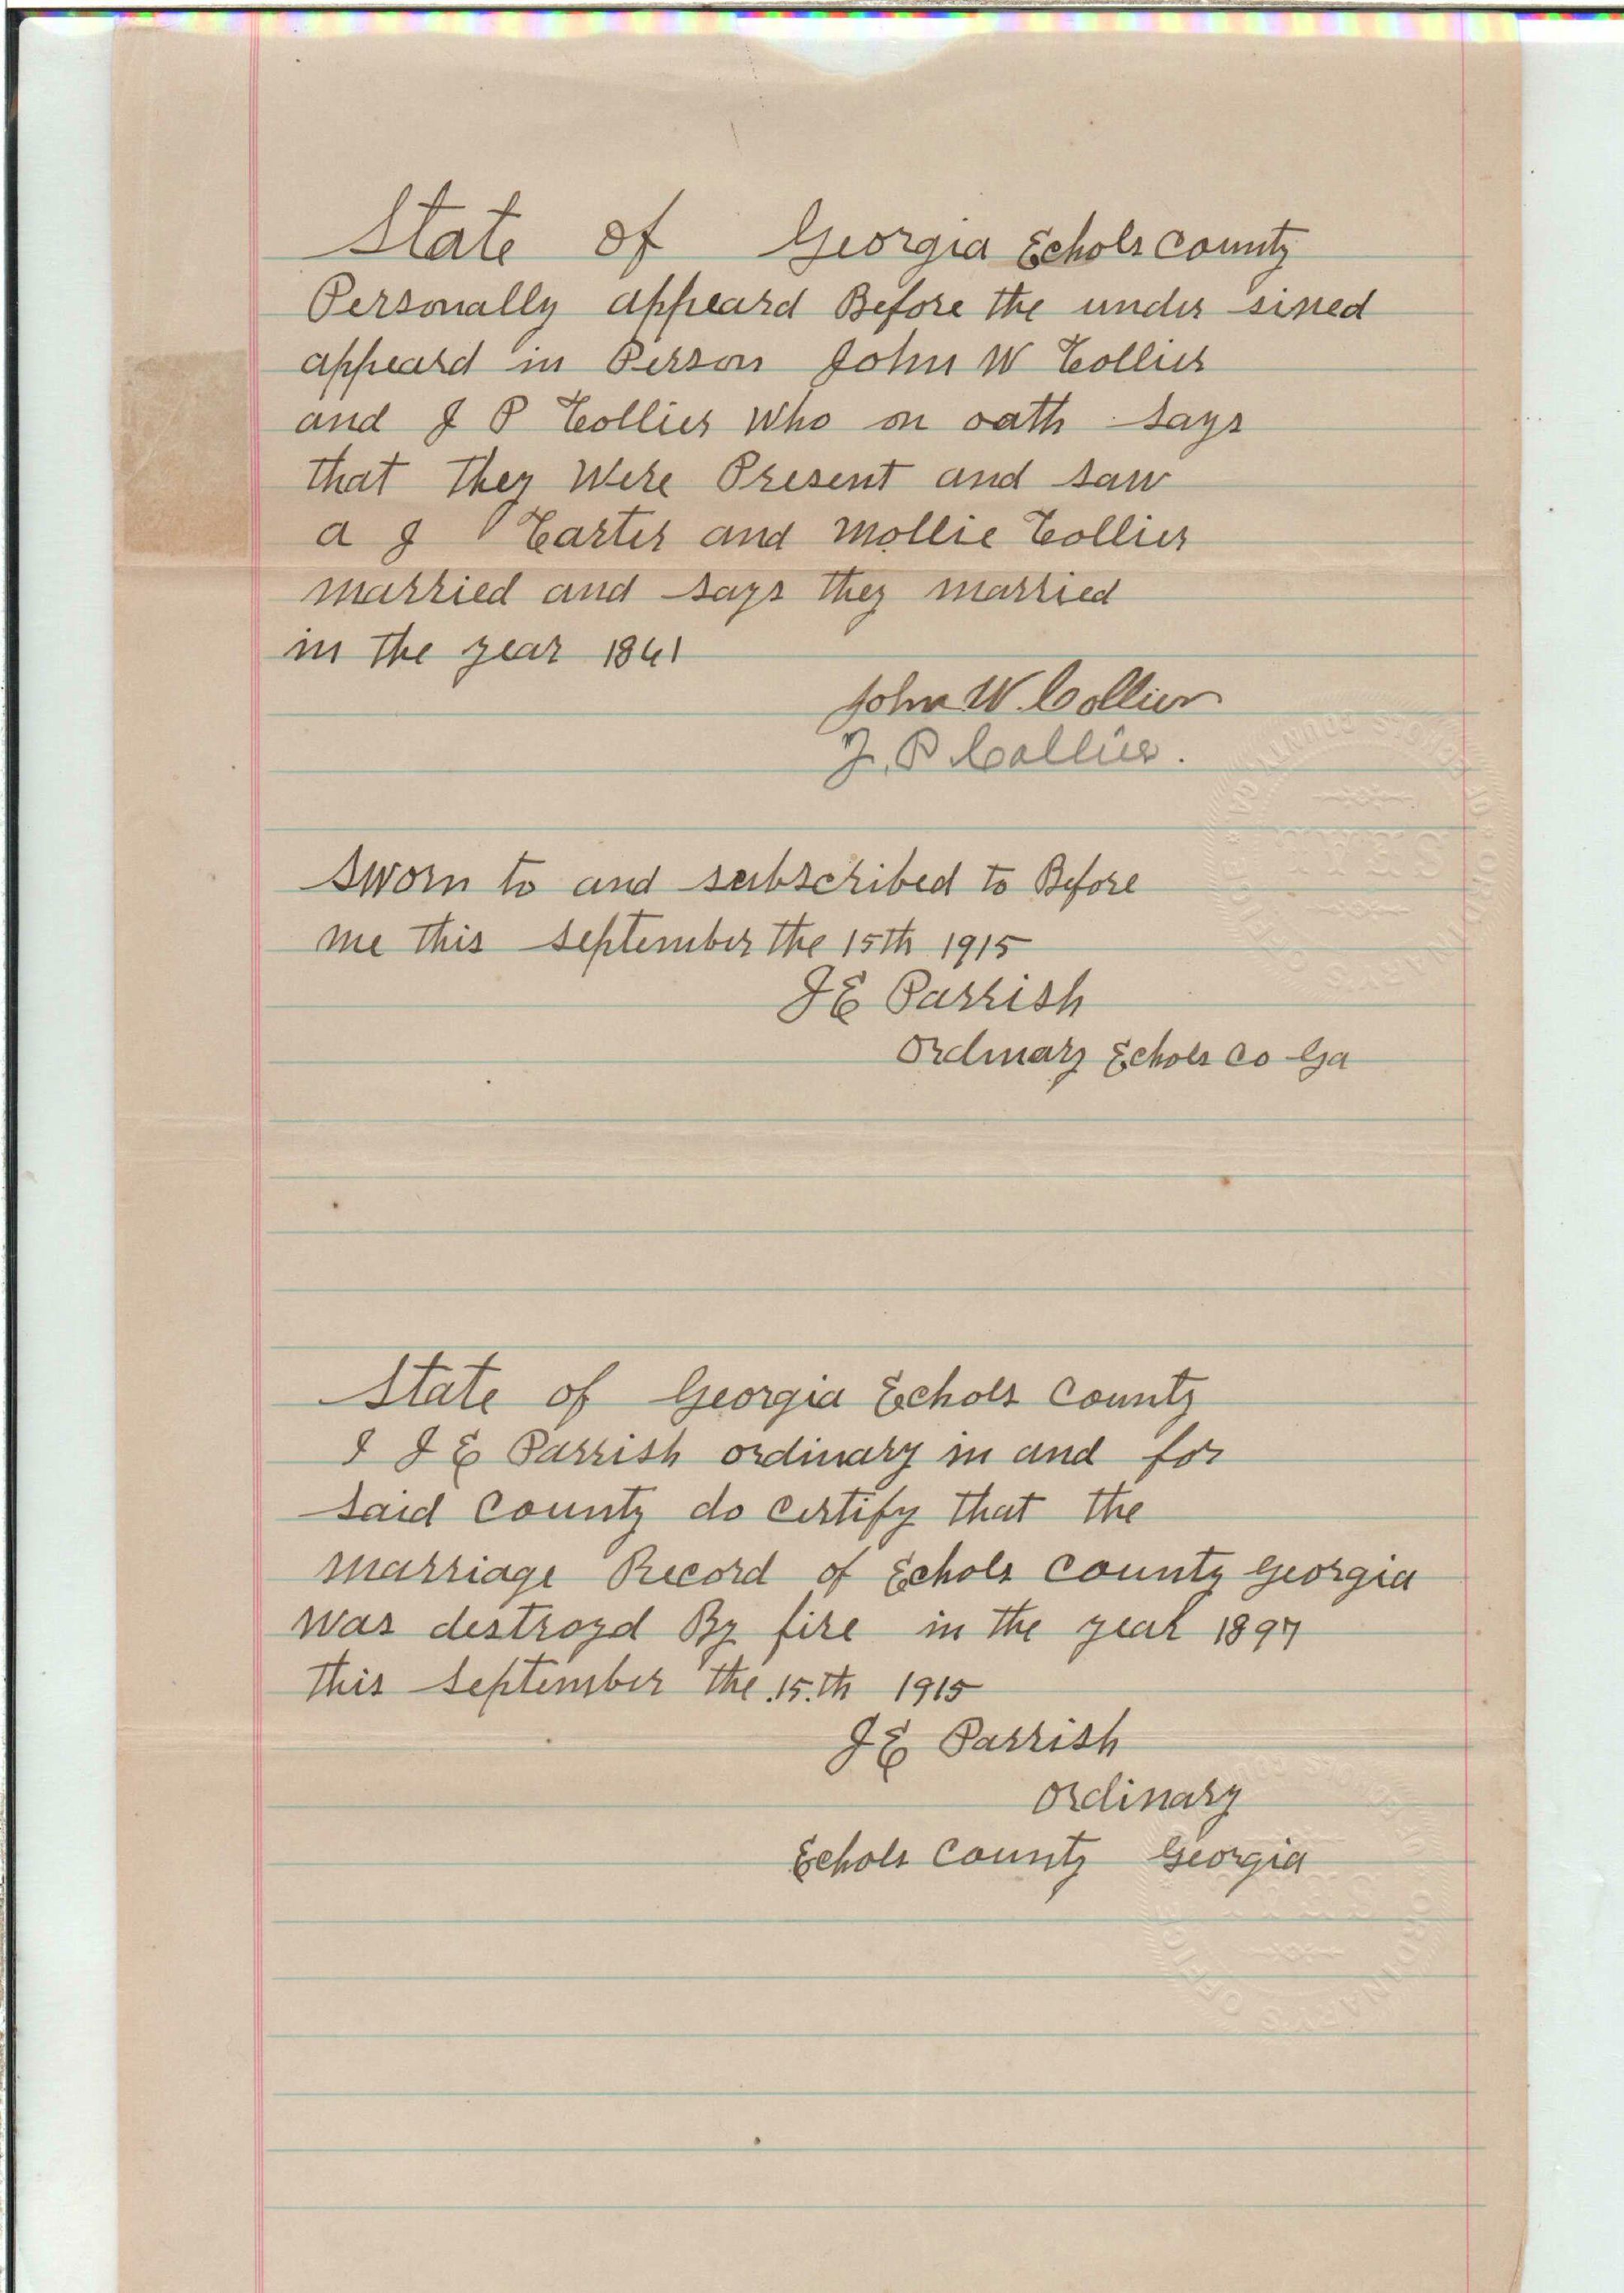 State of Georgia Echols County
Personally appeard Before the under sined
appeard in Person John W Collier
and J P Collier Who on oath says
that they Were Present and saw
a J Carter and Mollie Collier
married and says they married
in the year 1861
John W. Collier
J. P Collier.
Sworn to and subscribed to Before
me this September the 15th 1915
J E Parrish
Ordinary Echols Co Ga
State of Georgia Echols County
I J E Parrish ordinary in and for
said County do certify that the
marriage Record of Echols County Georgia
was destroyd By fire in the year 1897
this September the 15.th 1915
J E Parrish
Ordinary
Echols County Georgia
SEAL